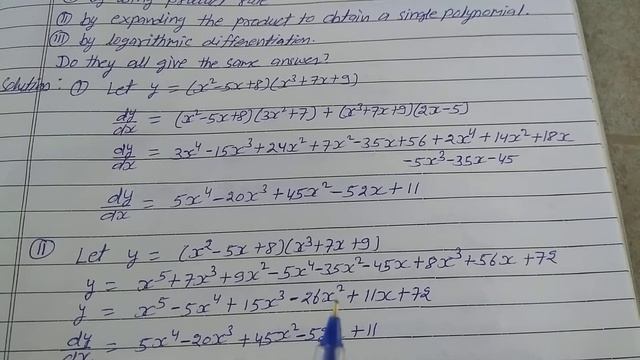 by using product rule
(II) by expanding the product to obtain a single polynomial.
(III) by logarithmic differentiation.
Do they all give the same answer?
Solution: (I) Let y = (x²-5x+8)(x³+7x+9)
dy/dx = (x²-5x+8)(3x²+7) + (x³+7x+9)(2x-5)
dy/dx = 3x⁴-15x³+24x²+7x²-35x+56+2x⁴+14x²+18x
-5x³-35x-45
dy/dx = 5x⁴-20x³+45x²-52x+11
(II) Let y = (x²-5x+8)(x³+7x+9)
y = x⁵+7x³+9x²-5x⁴-35x²-45x+8x³+56x+72
y = x⁵-5x⁴+15x³-26x²+11x+72
dy/dx = 5x⁴-20x³+45x²-5 +11